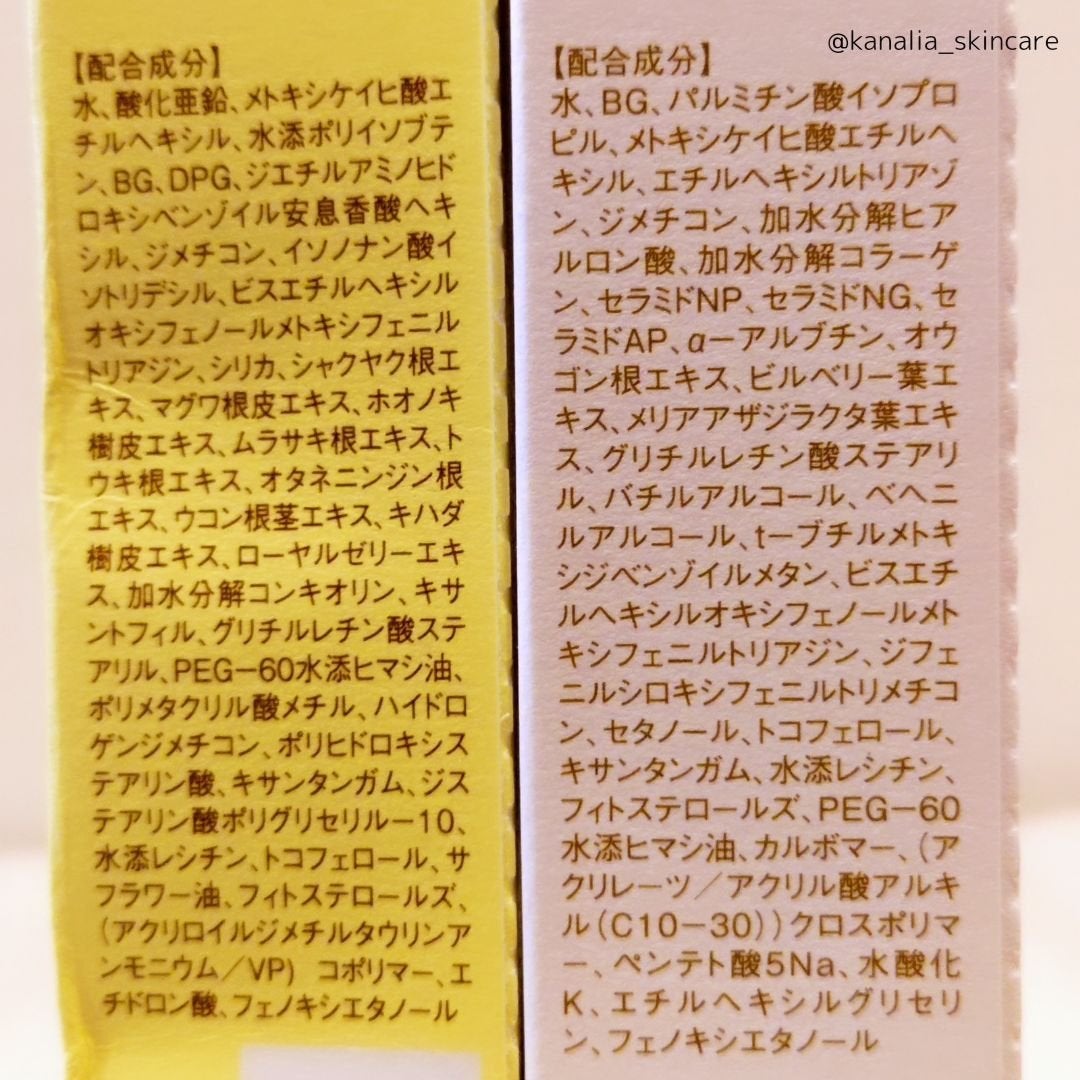 @kanalia_skincare
【配合成分】
水、酸化亜鉛、メトキシケイヒ酸エ
チルヘキシル、水添ポリイソブテ
ン、BG、DPG、ジエチルアミノヒド
ロキシベンゾイル安息香酸ヘキ
シル、ジメチコン、イソノナン酸イ
ソトリデシル、ビスエチルヘキシル
オキシフェノールメトキシフェニル
トリアジン、シリカ、シャクヤク根エ
キス、マグワ根皮エキス、ホオノキ
樹皮エキス、ムラサキ根エキス、ト
ウキ根エキス、オタネニンジン根
エキス、ウコン根茎エキス、キハダ
樹皮エキス、ローヤルゼリーエキ
ス、加水分解コンキオリン、キサ
ントフィル、グリチルレチン酸ステ
アリル、PEG－60水添ヒマシ油、
ポリメタクリル酸メチル、ハイドロ
ゲンジメチコン、ポリヒドロキシス
テアリン酸、キサンタンガム、ジス
テアリン酸ポリグリセリルー10、
水添レシチン、トコフェロール、サ
フラワー油、フィトステロールズ、
(アクリロイルジメチルタウリンア
ンモニウム／VP) コポリマー、エ
チドロン酸、フェノキシエタノール
【配合成分】
水、BG、パルミチン酸イソプロ
ピル、メトキシケイヒ酸エチルヘ
キシル、エチルヘキシルトリアゾ
ン、ジメチコン、加水分解ヒア
ルロン酸、加水分解コラーゲ
ン、セラミドNP、セラミドNG、セ
ラミドAP、α－アルブチン、オウ
ゴン根エキス、ビルベリー葉エ
キス、メリアアザジラクタ葉エキ
ス、グリチルレチン酸ステアリ
ル、バチルアルコール、ベヘニ
ルアルコール、t－ブチルメトキ
シジベンゾイルメタン、ビスエチ
ルヘキシルオキシフェノールメト
キシフェニルトリアジン、ジフェ
ニルシロキシフェニルトリメチコ
ン、セタノール、トコフェロール、
キサンタンガム、水添レシチン、
フィトステロールズ、PEG－60
水添ヒマシ油、カルボマー、(ア
クリレーツ／アクリル酸アルキ
ル(C10－30))クロスポリマ
ー、ペンテト酸5Na、水酸化
K、エチルヘキシルグリセリ
ン、フェノキシエタノール